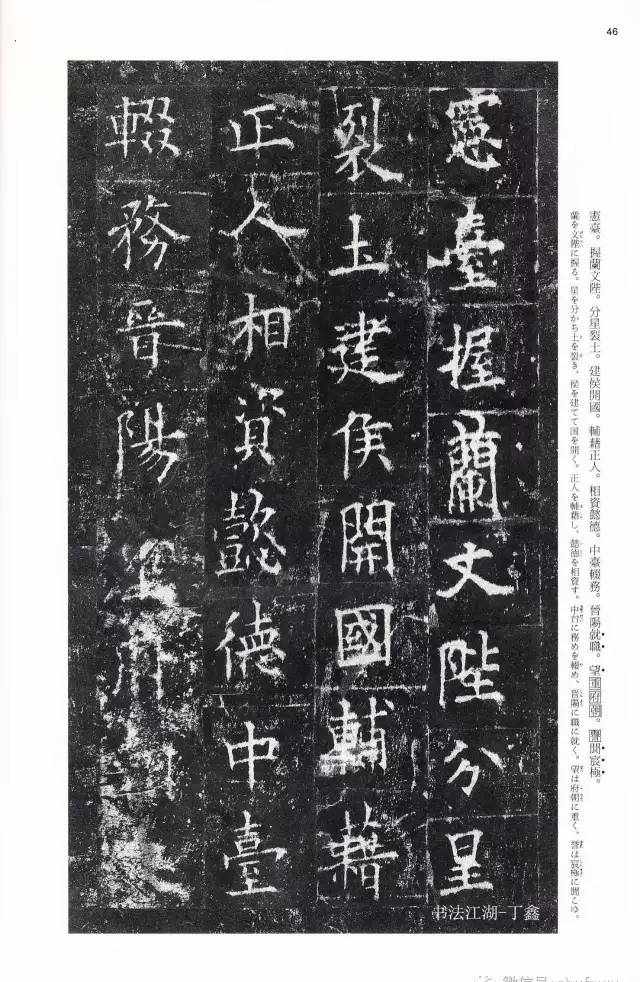 46
憲臺。握蘭文陛。分星裂土。建侯開國。輔藉正人。相資懿德。中臺輟務。晉陽就職。望重府朝。譽聞宸極。
蘭を文陛に握る。星を分かち土を裂き、侯を建てて国を開く。正人を輔藉し、懿德を相資す。中台に務めを輟め、晋陽に職に就く。望は府朝に重く、譽は宸極に聞こゆ。
憲臺握蘭文陛分星
裂土建侯開國輔藉
正人相資懿德中臺
輟務晉陽
书法江湖-丁鑫